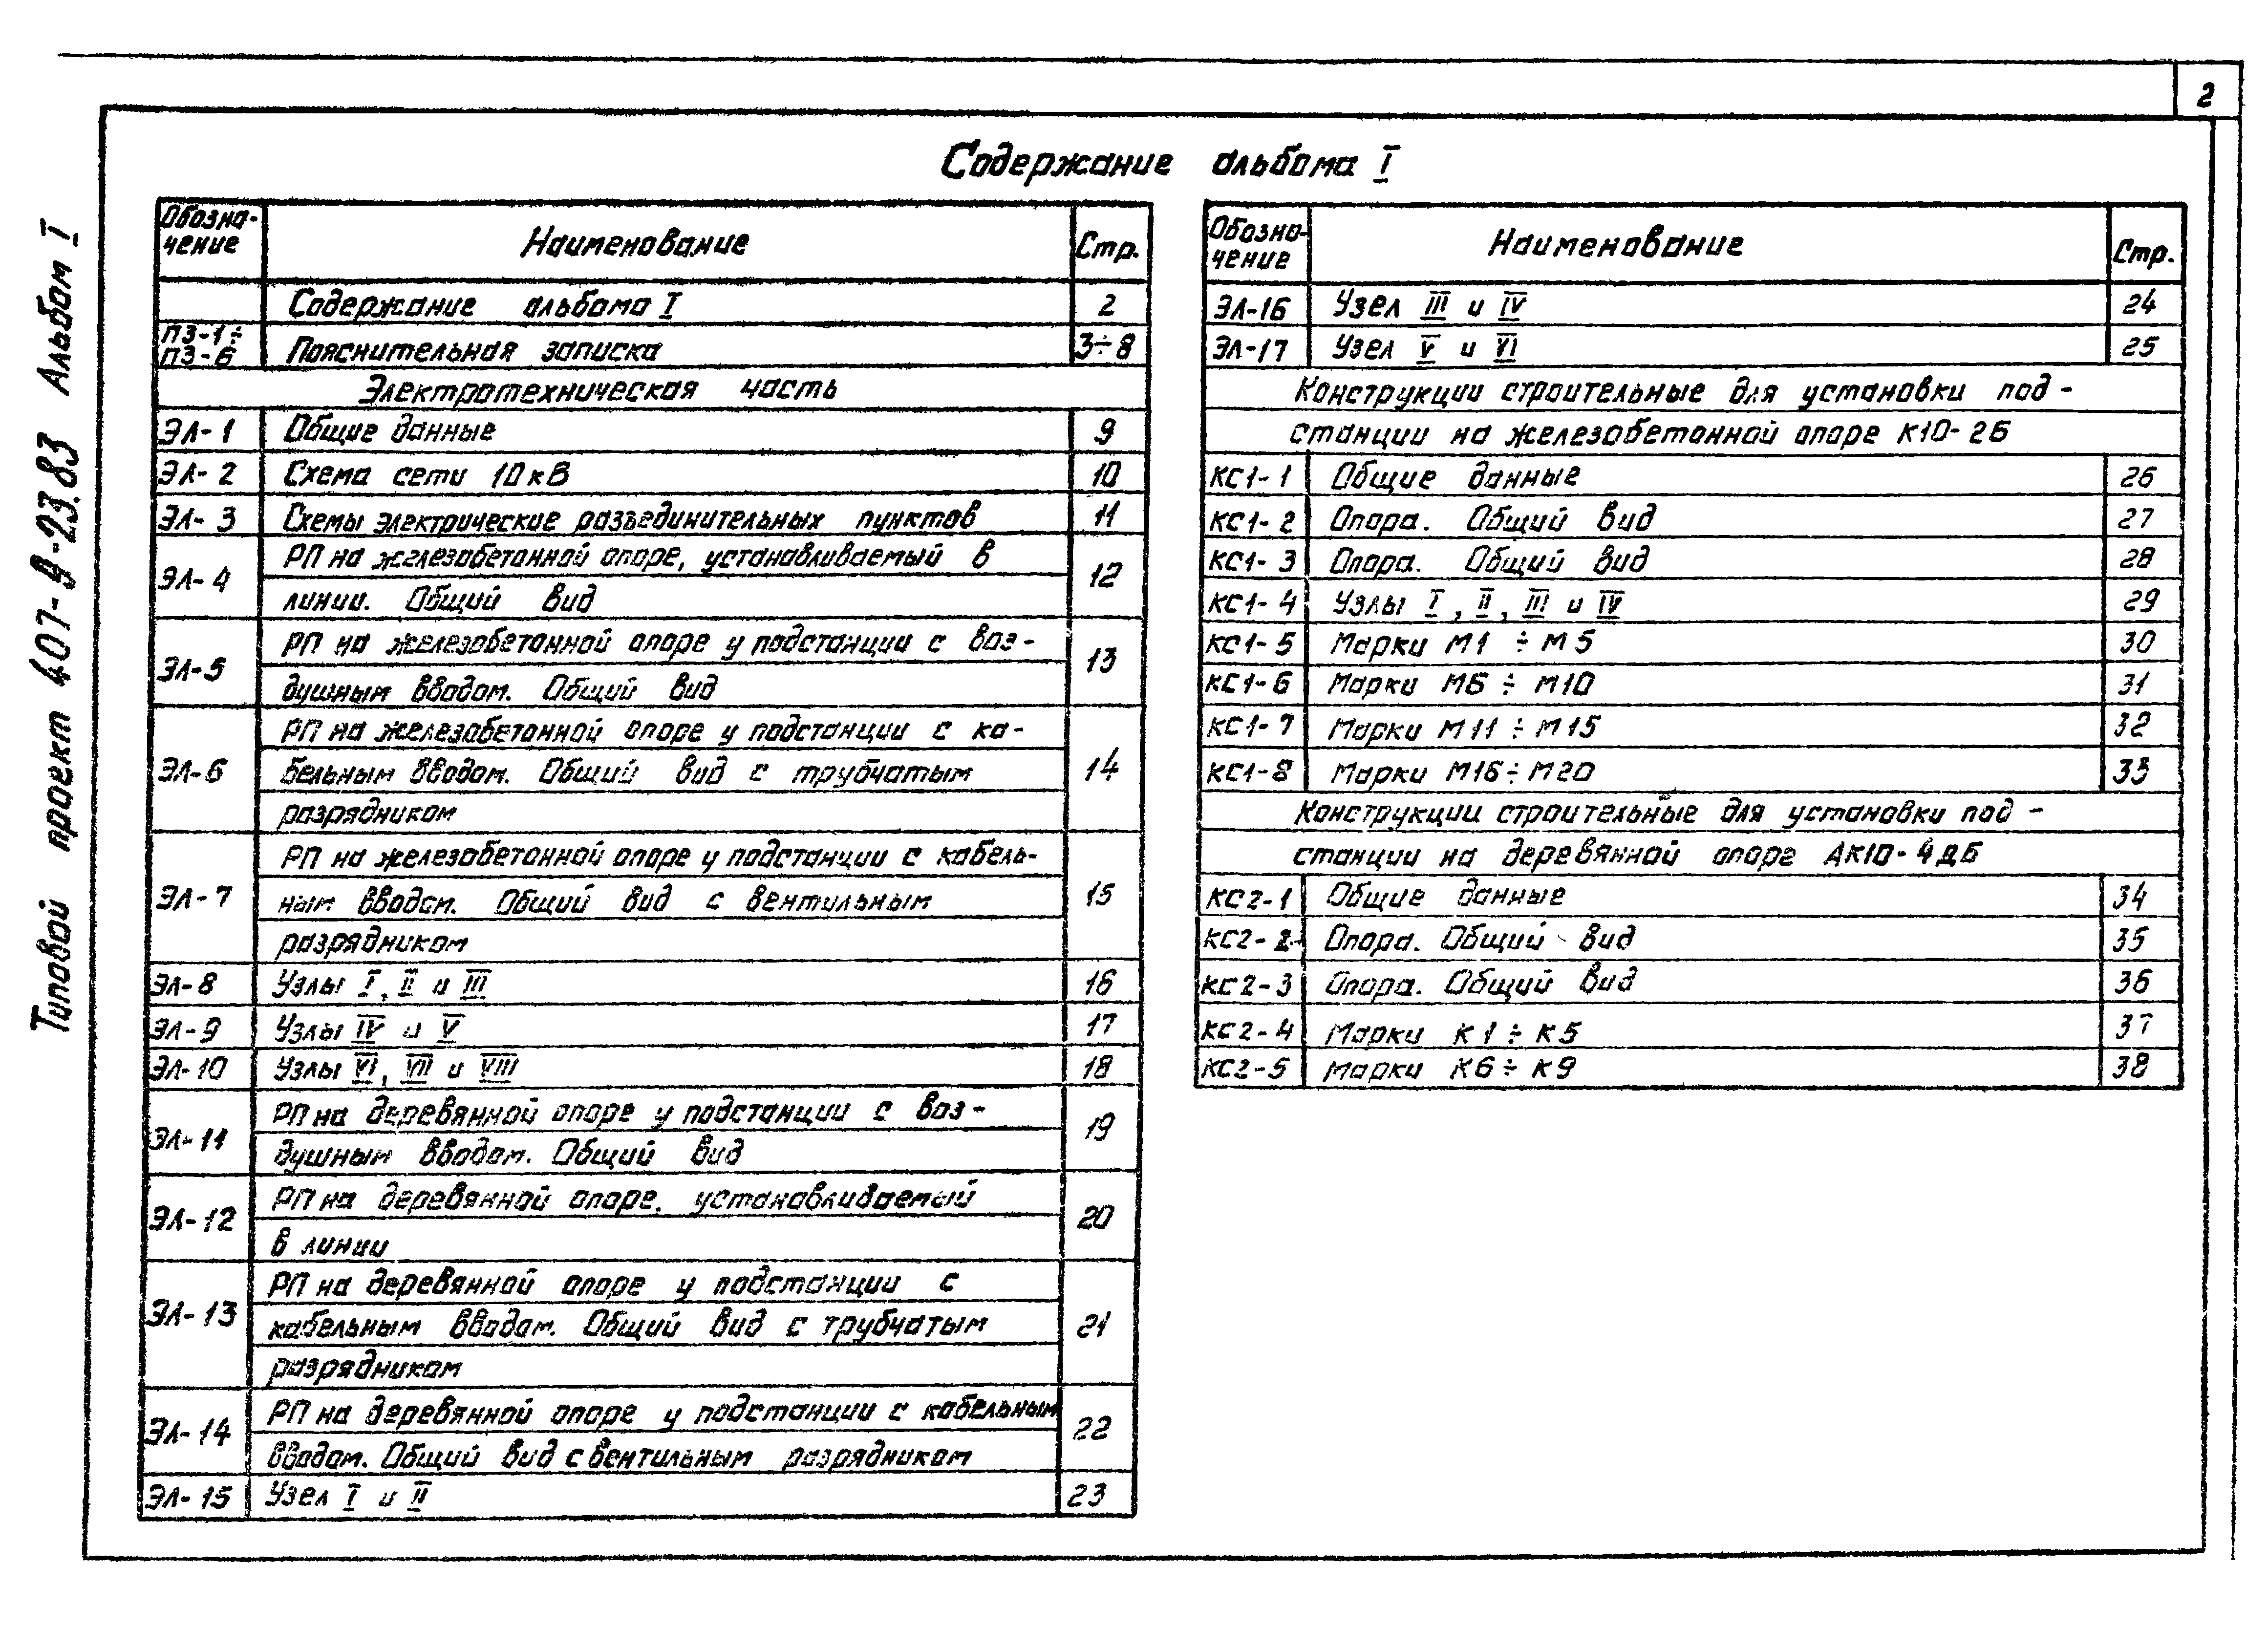 2
Содержание альбома I
Типовой проект 407-9-23.83 Альбом I
Обозна-
чение
Наименование
Стр.
Содержание альбома I
2
ПЗ-1÷
ПЗ-6
Пояснительная записка
3÷8
Электротехническая часть
ЭЛ-1
Общие данные
9
ЭЛ-2
Схема сети 10кВ
10
ЭЛ-3
Схемы электрические разъединительных пунктов
11
ЭЛ-4
РП на железобетонной опоре, устанавливаемый в
линии. Общий вид
12
ЭЛ-5
РП на железобетонной опоре у подстанции с воз-
душным вводом. Общий вид
13
ЭЛ-6
РП на железобетонной опоре у подстанции с ка-
бельным вводом. Общий вид с трубчатым
разрядником
14
ЭЛ-7
РП на железобетонной опоре у подстанции с кабель-
ным вводом. Общий вид с вентильным
разрядником
15
ЭЛ-8
Узлы I, II и III
16
ЭЛ-9
Узлы IV и V
17
ЭЛ-10
Узлы VI, VII и VIII
18
ЭЛ-11
РП на деревянной опоре у подстанции с воз-
душным вводом. Общий вид
19
ЭЛ-12
РП на деревянной опоре, устанавливаемый
в линии
20
ЭЛ-13
РП на деревянной опоре у подстанции с
кабельным вводом. Общий вид с трубчатым
разрядником
21
ЭЛ-14
РП на деревянной опоре у подстанции с кабельным
вводом. Общий вид с вентильным разрядником
22
ЭЛ-15
Узел I и II
23
Обозна-
чение
Наименование
Стр.
ЭЛ-16
Узел III и IV
24
ЭЛ-17
Узел V и VI
25
Конструкции строительные для установки под-
станции на железобетонной опоре К10-2Б
КС1-1
Общие данные
26
КС1-2
Опора. Общий вид
27
КС1-3
Опора. Общий вид
28
КС1-4
Узлы I, II, III и IV
29
КС1-5
Марки М1 ÷ М5
30
КС1-6
Марки М6 ÷ М10
31
КС1-7
Марки М11 ÷ М15
32
КС1-8
Марки М16÷М20
33
Конструкции строительные для установки под-
станции на деревянной опоре АК10-4ДБ
КС2-1
Общие данные
34
КС2-2
Опора. Общий вид
35
КС2-3
Опора. Общий вид
36
КС2-4
Марки К1÷К5
37
КС2-5
Марки К6÷К9
38